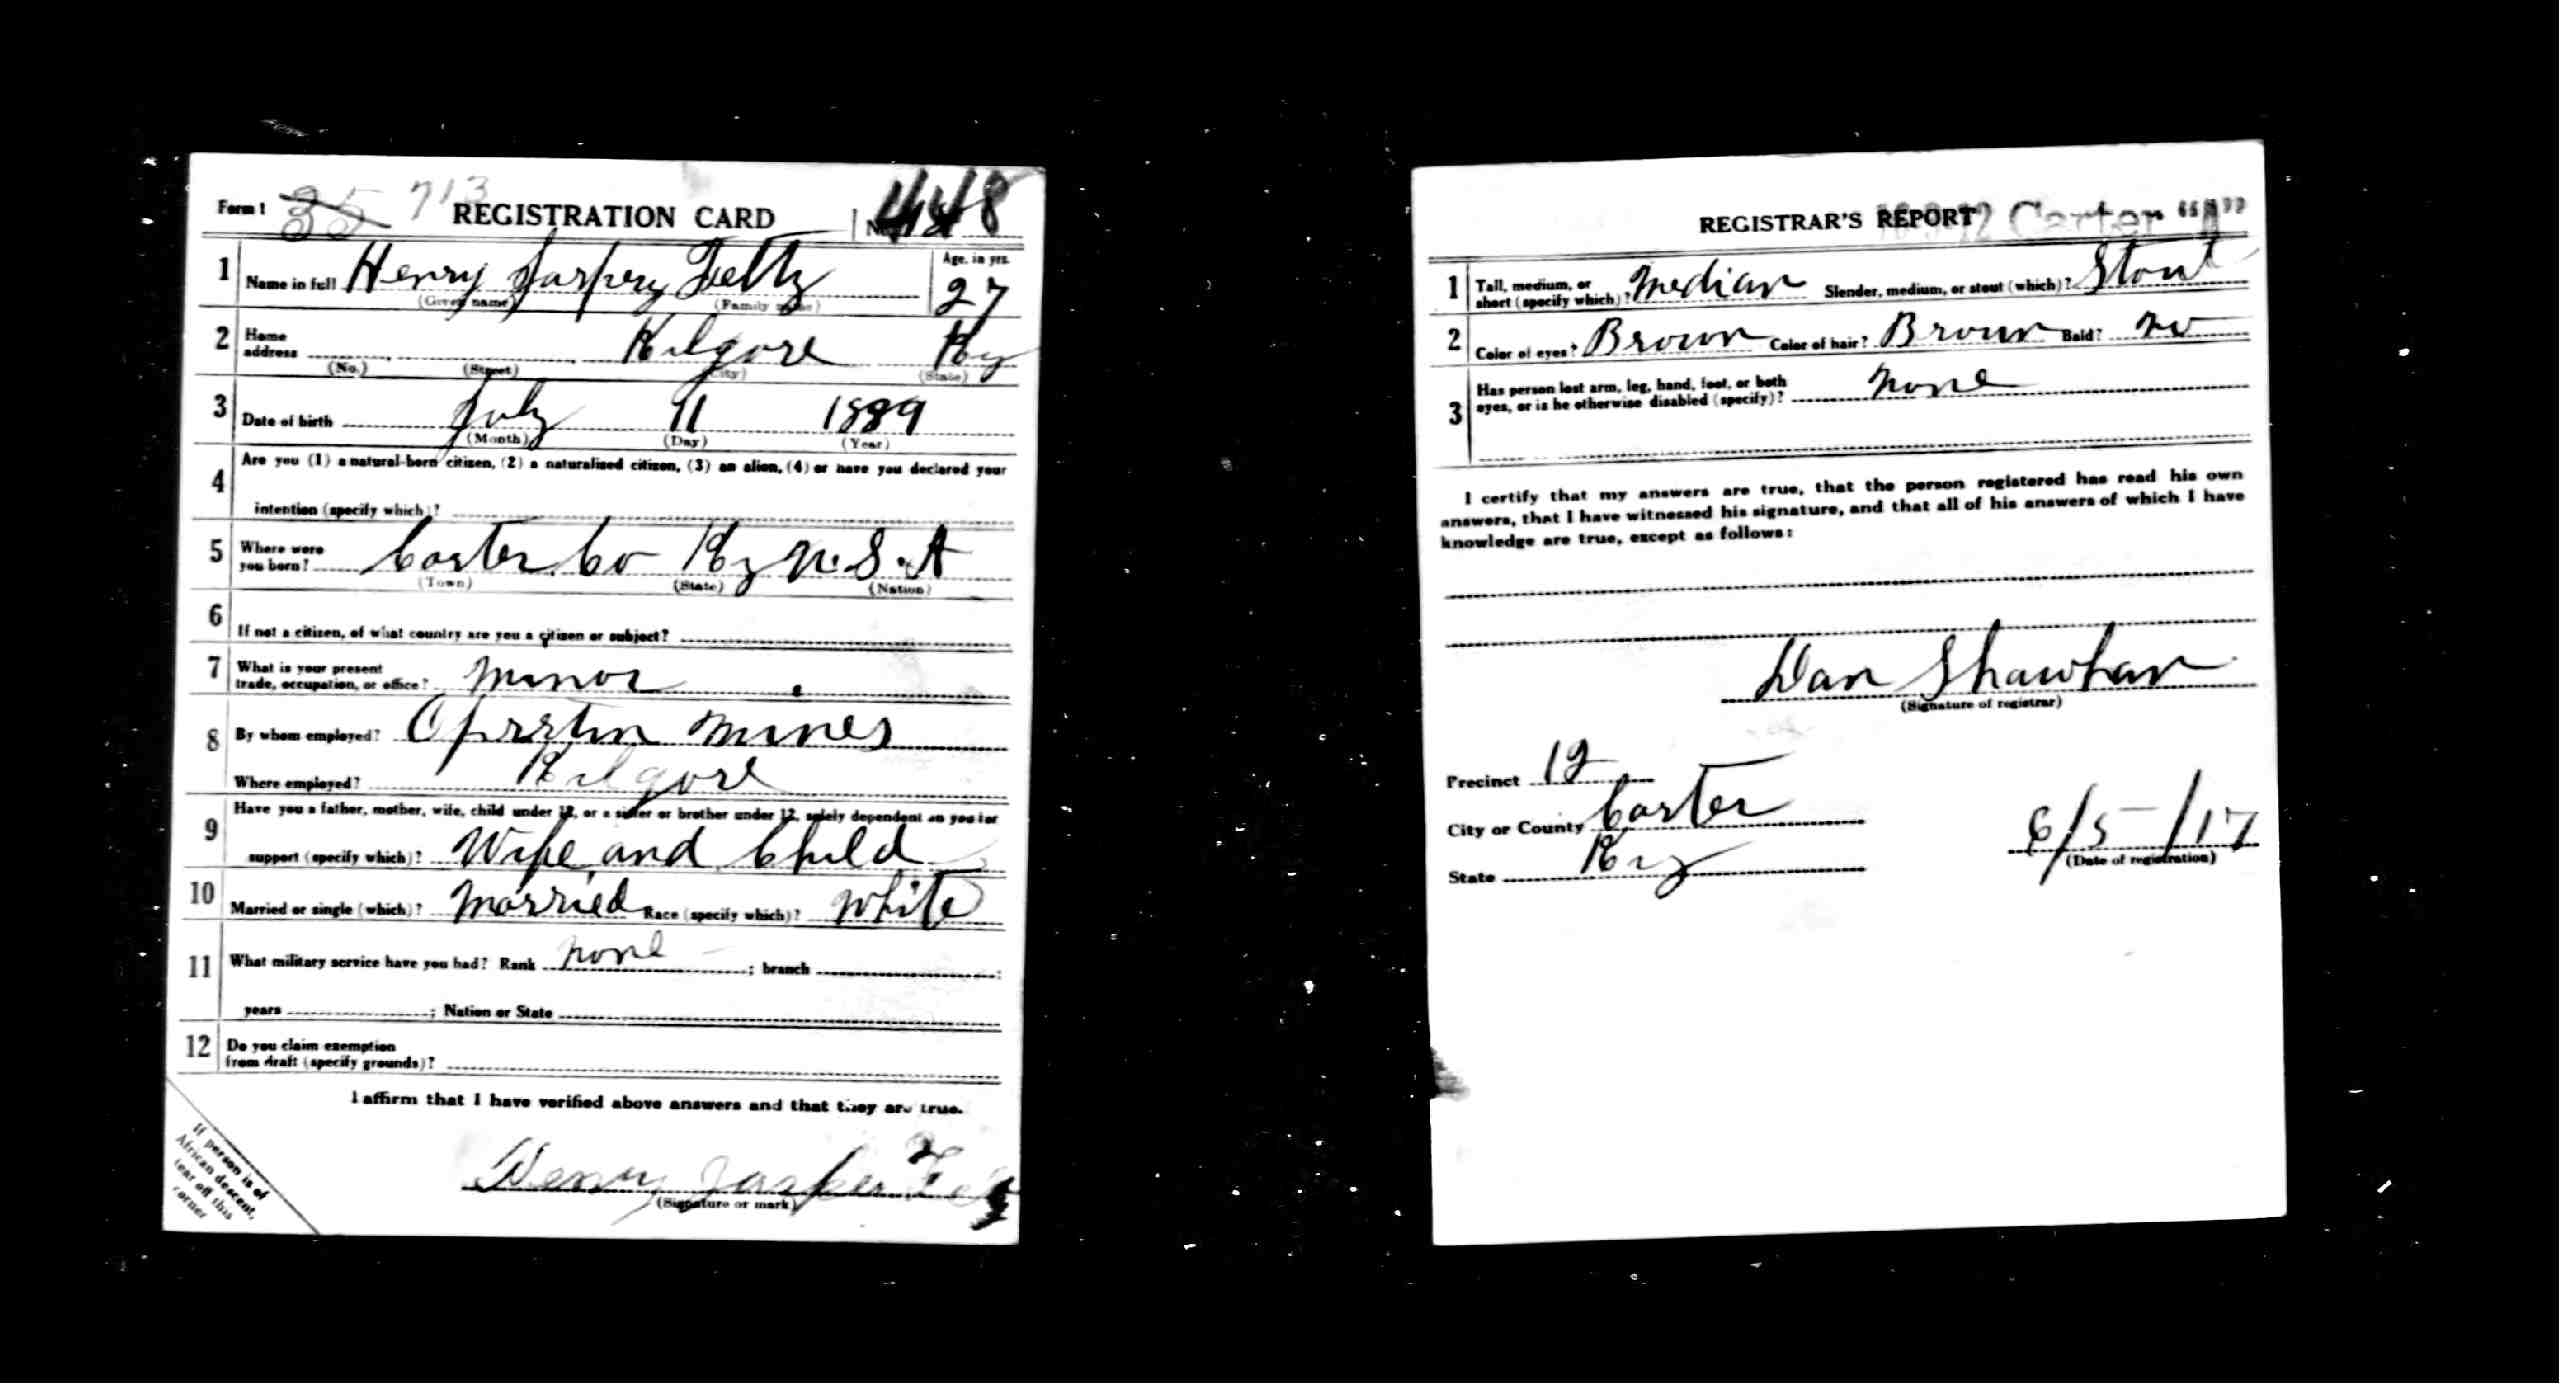 Form 1 35 713 REGISTRATION CARD No. 448
1 Name in full Henry Jasper Feltz Age, in yrs. 27
(Given name) (Family name)
2 Home address Kilgore Ky
(No.) (Street) (City) (State)
3 Date of birth July 11 1889
(Month) (Day) (Year)
4 Are you (1) a natural-born citizen, (2) a naturalized citizen, (3) an alien, (4) or have you declared your
intention (specify which)?
5 Where were you born? Carter Co Ky U.S.A
(Town) (State) (Nation)
6 If not a citizen, of what country are you a citizen or subject?
7 What is your present trade, occupation, or office? Minor
8 By whom employed? mines
Where employed? Kilgore
9 Have you a father, mother, wife, child under 12, or a sister or brother under 12, solely dependent on you for
support (specify which)? Wife and Child
10 Married or single (which)? Married Race (specify which)? White
11 What military service have you had? Rank none ; branch ;
years ; Nation or State
12 Do you claim exemption
from draft (specify grounds)?
I affirm that I have verified above answers and that they are true.
Henry Jasper
(Signature or mark)
If person is of
African descent,
tear off this
corner
REGISTRAR'S REPORT Carter "A"
1 Tall, medium, or
short (specify which)? Median Slender, medium, or stout (which)? Stout
2 Color of eyes? Brown Color of hair? Brown Bald? no
3 Has person lost arm, leg, hand, foot, or both
eyes, or is he otherwise disabled (specify)? none
I certify that my answers are true, that the person registered has read his own
answers, that I have witnessed his signature, and that all of his answers of which I have
knowledge are true, except as follows:
Dan Shawhan
(Signature of registrar)
Precinct 12
City or County Carter
State Ky
6/5/17
(Date of registration)